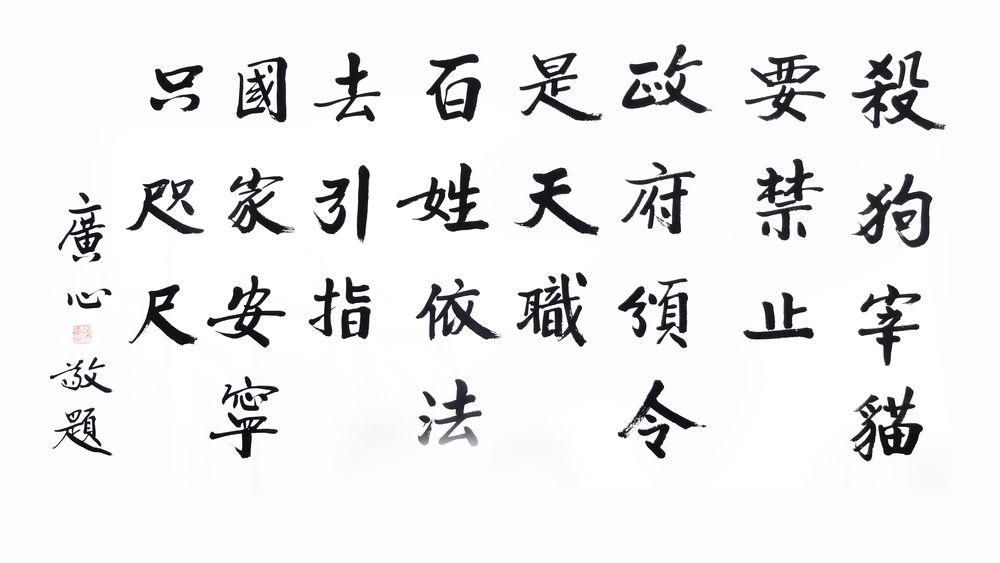 殺狗宰貓
要禁止
政府領令
是天職
百姓依法
去引指
國家安寧
只咫尺
廣心敬題